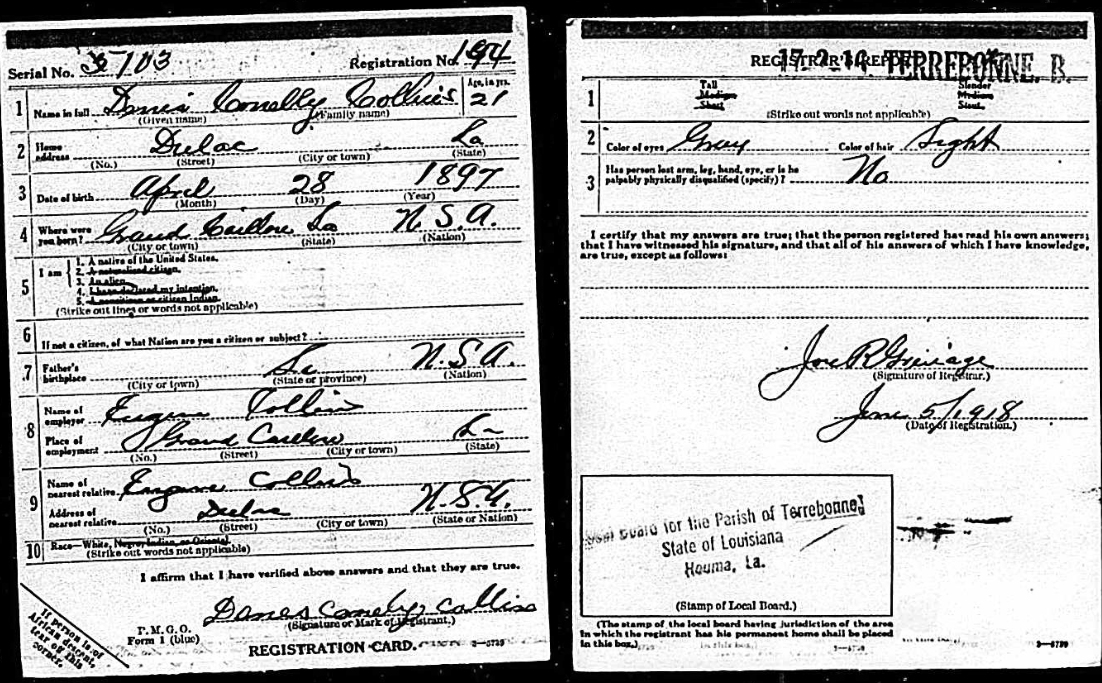 Serial No. 103 Registration No. 194
1 Name in full Denis Conelly Collins Age, in yrs. 21
(Given name) (Family name)
2 Home address Dulac La
(No.) (Street) (City or town) (State)
3 Date of birth April 28 1897
(Month) (Day) (Year)
4 Where were you born? Grand Caillou La U.S.A.
(City or town) (State) (Nation)
5 I am
1. A native of the United States.
2. A naturalized citizen.
3. An alien.
4. I have declared my intention.
5. A noncitizen or citizen Indian.
(Strike out lines or words not applicable)
6 If not a citizen, of what Nation are you a citizen or subject?
7 Father's birthplace La U.S.A.
(City or town) (State or province) (Nation)
8 Name of employer Eugene Collins
Place of employment Grand Caillou La
(No.) (Street) (City or town) (State)
9 Name of nearest relative Eugene Collins
Address of nearest relative Dulac U.S.A.
(No.) (Street) (City or town) (State or Nation)
10 Race—White, Negro, Indian, or Oriental.
(Strike out words not applicable)
I affirm that I have verified above answers and that they are true.
(Signature or Mark of Registrant.)
P.M.G.O.
Form 1 (blue)
REGISTRATION CARD.
If person is of
African descent,
tear off this
corner.
REGISTRAR'S REPORT
17-2-16 TERREBONNE, B.
1 Tall Medium Short Slender Medium Stout
(Strike out words not applicable)
2 Color of eyes Gray Color of hair Light
3 Has person lost arm, leg, hand, eye, or is he
palpably physically disqualified (specify)? No
I certify that my answers are true; that the person registered has read his own answers;
that I have witnessed his signature, and that all of his answers of which I have knowledge,
are true, except as follows:
(Signature of Registrar.)
June 5/1918
(Date of Registration.)
Local Board for the Parish of Terrebonne,
State of Louisiana
Houma, La.
(Stamp of Local Board.)
(The stamp of the local board having jurisdiction of the area
in which the registrant has his permanent home shall be placed
in this box.)